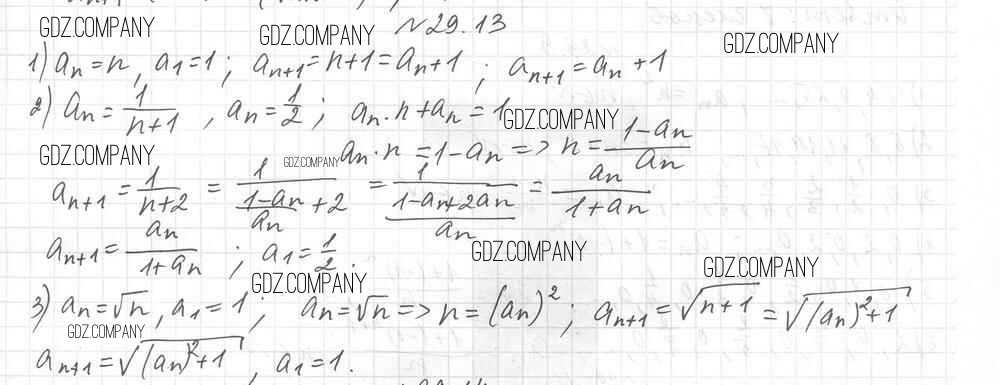 GDZ.COMPANY GDZ.COMPANY №29.13 GDZ.COMPANY
1) aₙ = n, a₁ = 1; aₙ₊₁ = n+1 = aₙ+1; aₙ₊₁ = aₙ + 1
2) aₙ = 1/(n+1), aₙ = 1/2; aₙ·n + aₙ = 1 GDZ.COMPANY
GDZ.COMPANY GDZ.COMPANY aₙ·n = 1-aₙ => n = (1-aₙ)/aₙ
aₙ₊₁ = 1/(n+2) = 1/((1-aₙ)/aₙ + 2) = 1/((1-aₙ+2aₙ)/aₙ) = aₙ/(1+aₙ)
aₙ₊₁ = aₙ/(1+aₙ); a₁ = 1/2. GDZ.COMPANY
GDZ.COMPANY GDZ.COMPANY
3) aₙ = √n, a₁ = 1; aₙ = √n => n = (aₙ)²; aₙ₊₁ = √(n+1) = √((aₙ)²+1)
GDZ.COMPANY
aₙ₊₁ = √((aₙ)²+1), a₁ = 1.